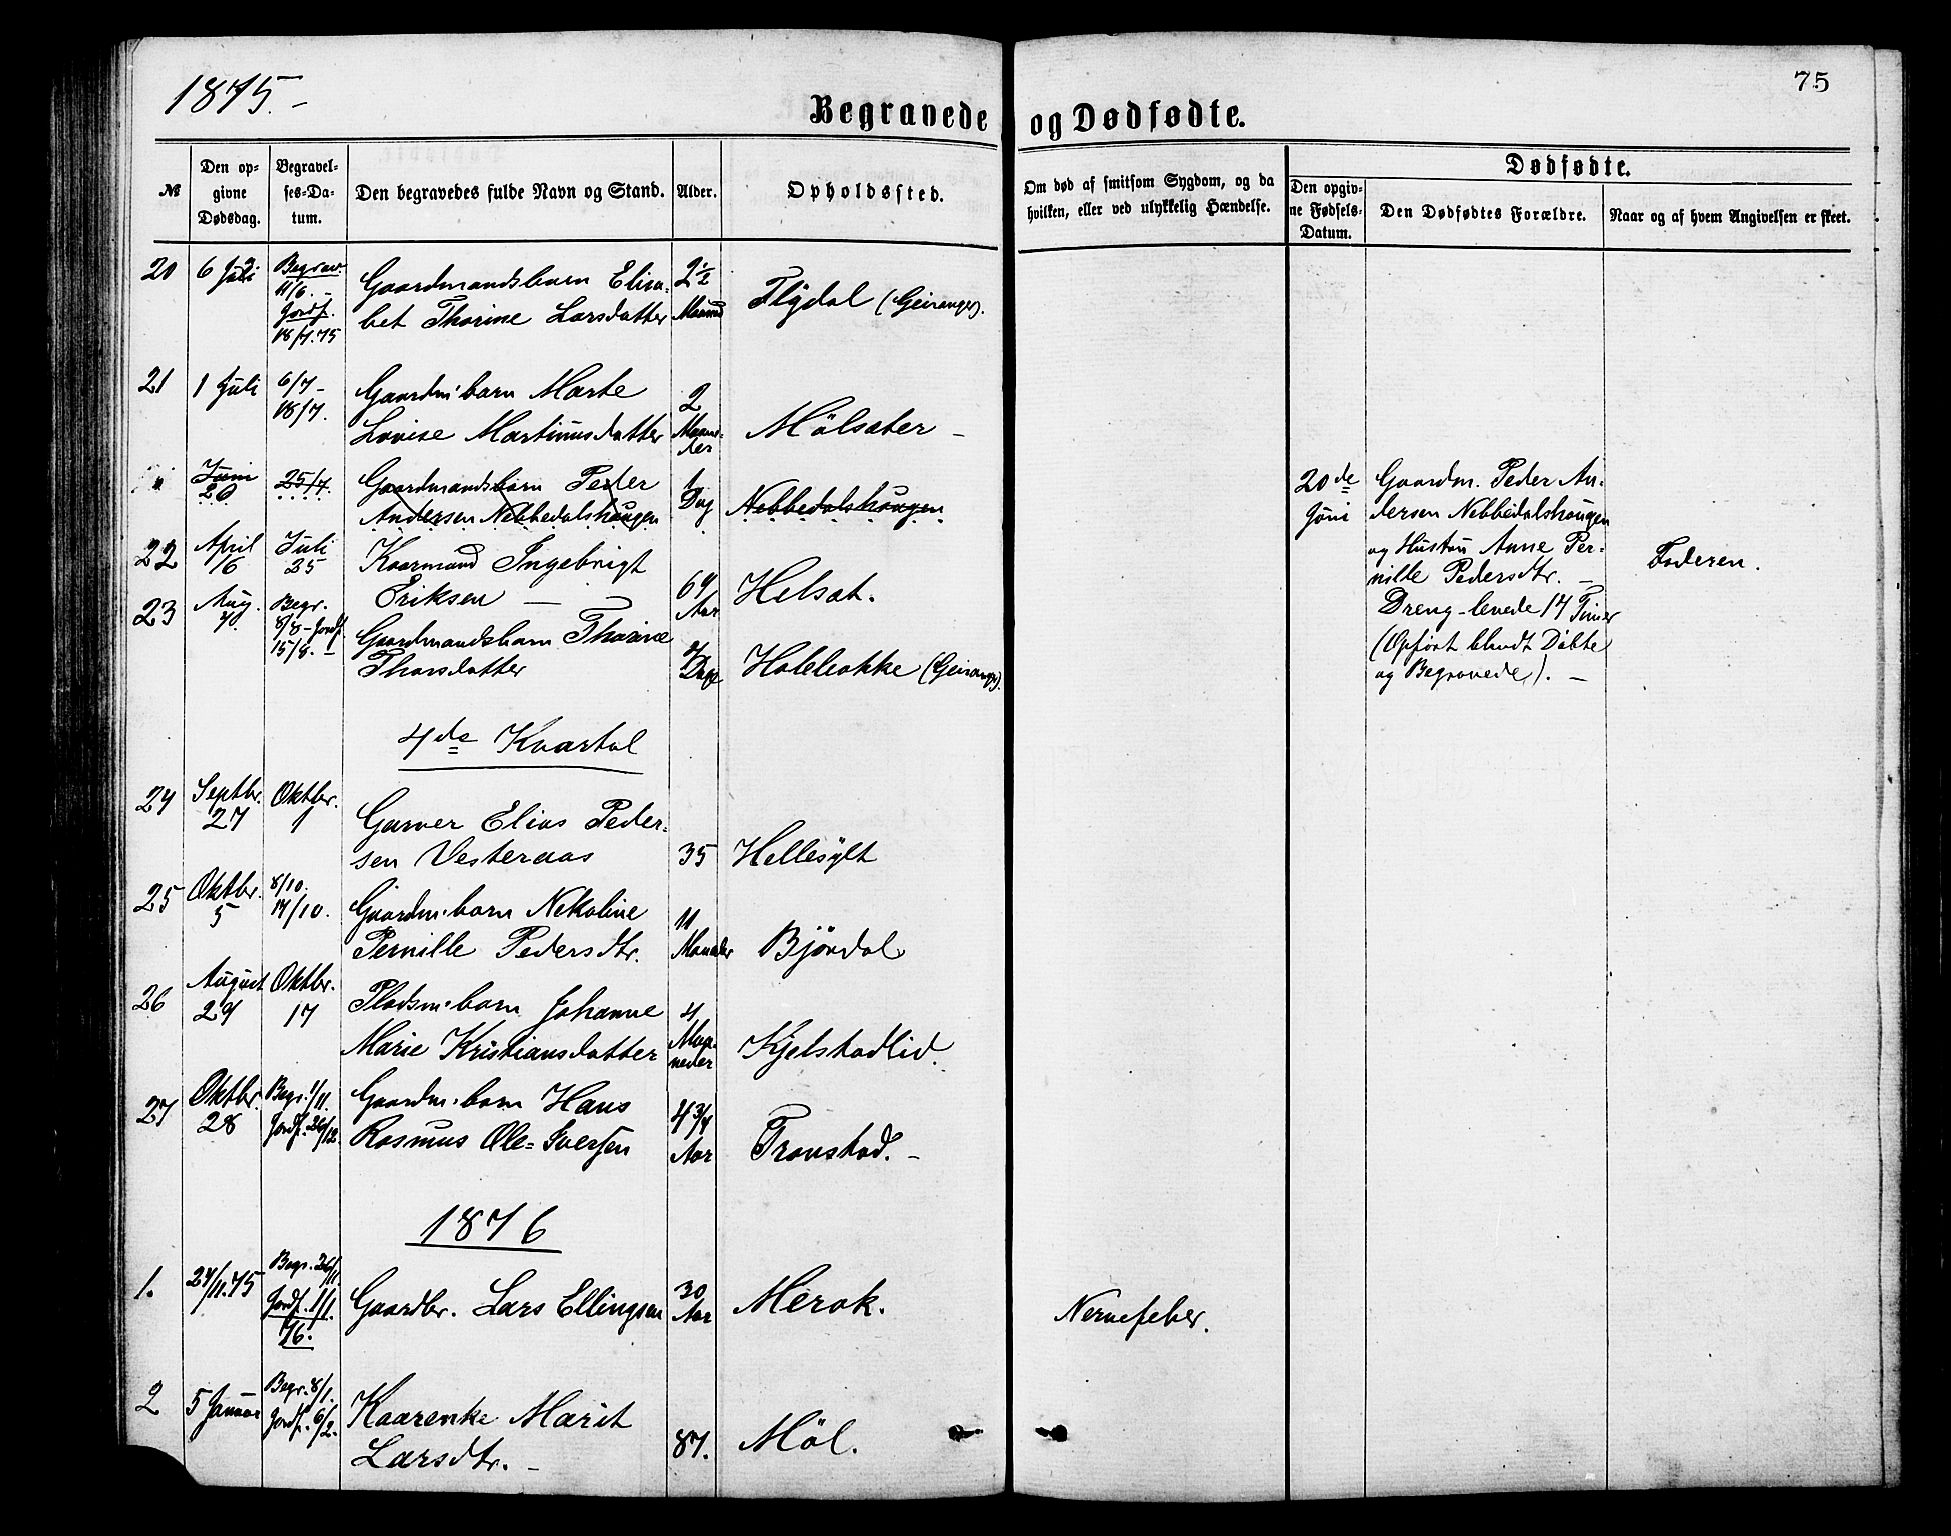 1875.-
75
Begravede og Dødfødte.
Dødfødte.
№
Den op-
givne
Dødsdag.
Begravel-
ses-Da-
tum.
Den begravedes fulde Navn og Stand.
Alder.
Opholdssted.
Om død af smitsom Sygdom, og da
hvilken, eller ved ulykkelig Hændelse.
Den opgiv-
ne Fødsels-
Datum.
Den Dødfødtes Forældre.
Naar og af hvem Angivelsen er skeet.
20
6 Juli
Begrav.
11/6. -
Jordf.
18/7.75
Gaardmandsbarn Elisa-
bet Thorine Larsdatter
2 1/2
Maaned
Flydal (Geiranger).
21
1 Juli
6/7 -
18/7.
Gaardm:barn Marte
Lovise Martinusdatter
2
Maane-
der
Mölsæter -
Juni
20
25/7.
Gaardmandsbarn Peder
Andersen Nebbedalshaugen
1
Dag
Nebbedalshaugen
20de
Juni
Gaardm. Peder An-
dersen Nebbedalshaugen
og Hustru Anne Per-
nille Pedersdtr. -
Dreng - levede 14 Timer
(Opført blandt Döbte
og Begravede). -
Faderen.
22
April
16
Juli
25
Kaarmand Ingebrigt
Eriksen - -
64
Aar
Helsæt.
23
Aug.
4.
Begr.
8/8 - Jordf.
15/8. -
Gaardmandsbarn Thorine
Thorsdatter
Dage
Holebakke (Geiranger).
4de Kvartal
24
Septbr.
27
Oktbr.
1
Garver Elias Peder-
sen Vesteraas
35
Hellesylt
25
Oktbr.
5
8/10.
17/10.
Gaardm:barn Nekoline
Pernille Pedersdtr.
11
Maaneder
Bjørdal
26
August
24
Oktbr.
17
Pladsm:barn Johanne
Marie Kristiansdatter
4
Maa-
neder
Kjelstadlid.
27
Oktbr.
28
Begr. 1/11.
Jordf. 26/12.
Gaardm:barn Hans
Rasmus Ole=Iversen
4 3/4
Aar
Tronstad. -
1876
1.
24/11.75
Begr. 26/11.
Jordf. 1/1.
76.
Gaardbr. Lars Ellingsen
30
Aar
Merok.
Nervefeber.
2
5 Januar
Begr. 8/1.
Jordf. 6/2.
Kaarenke Marit
Larsdtr. -
87.
Möl.